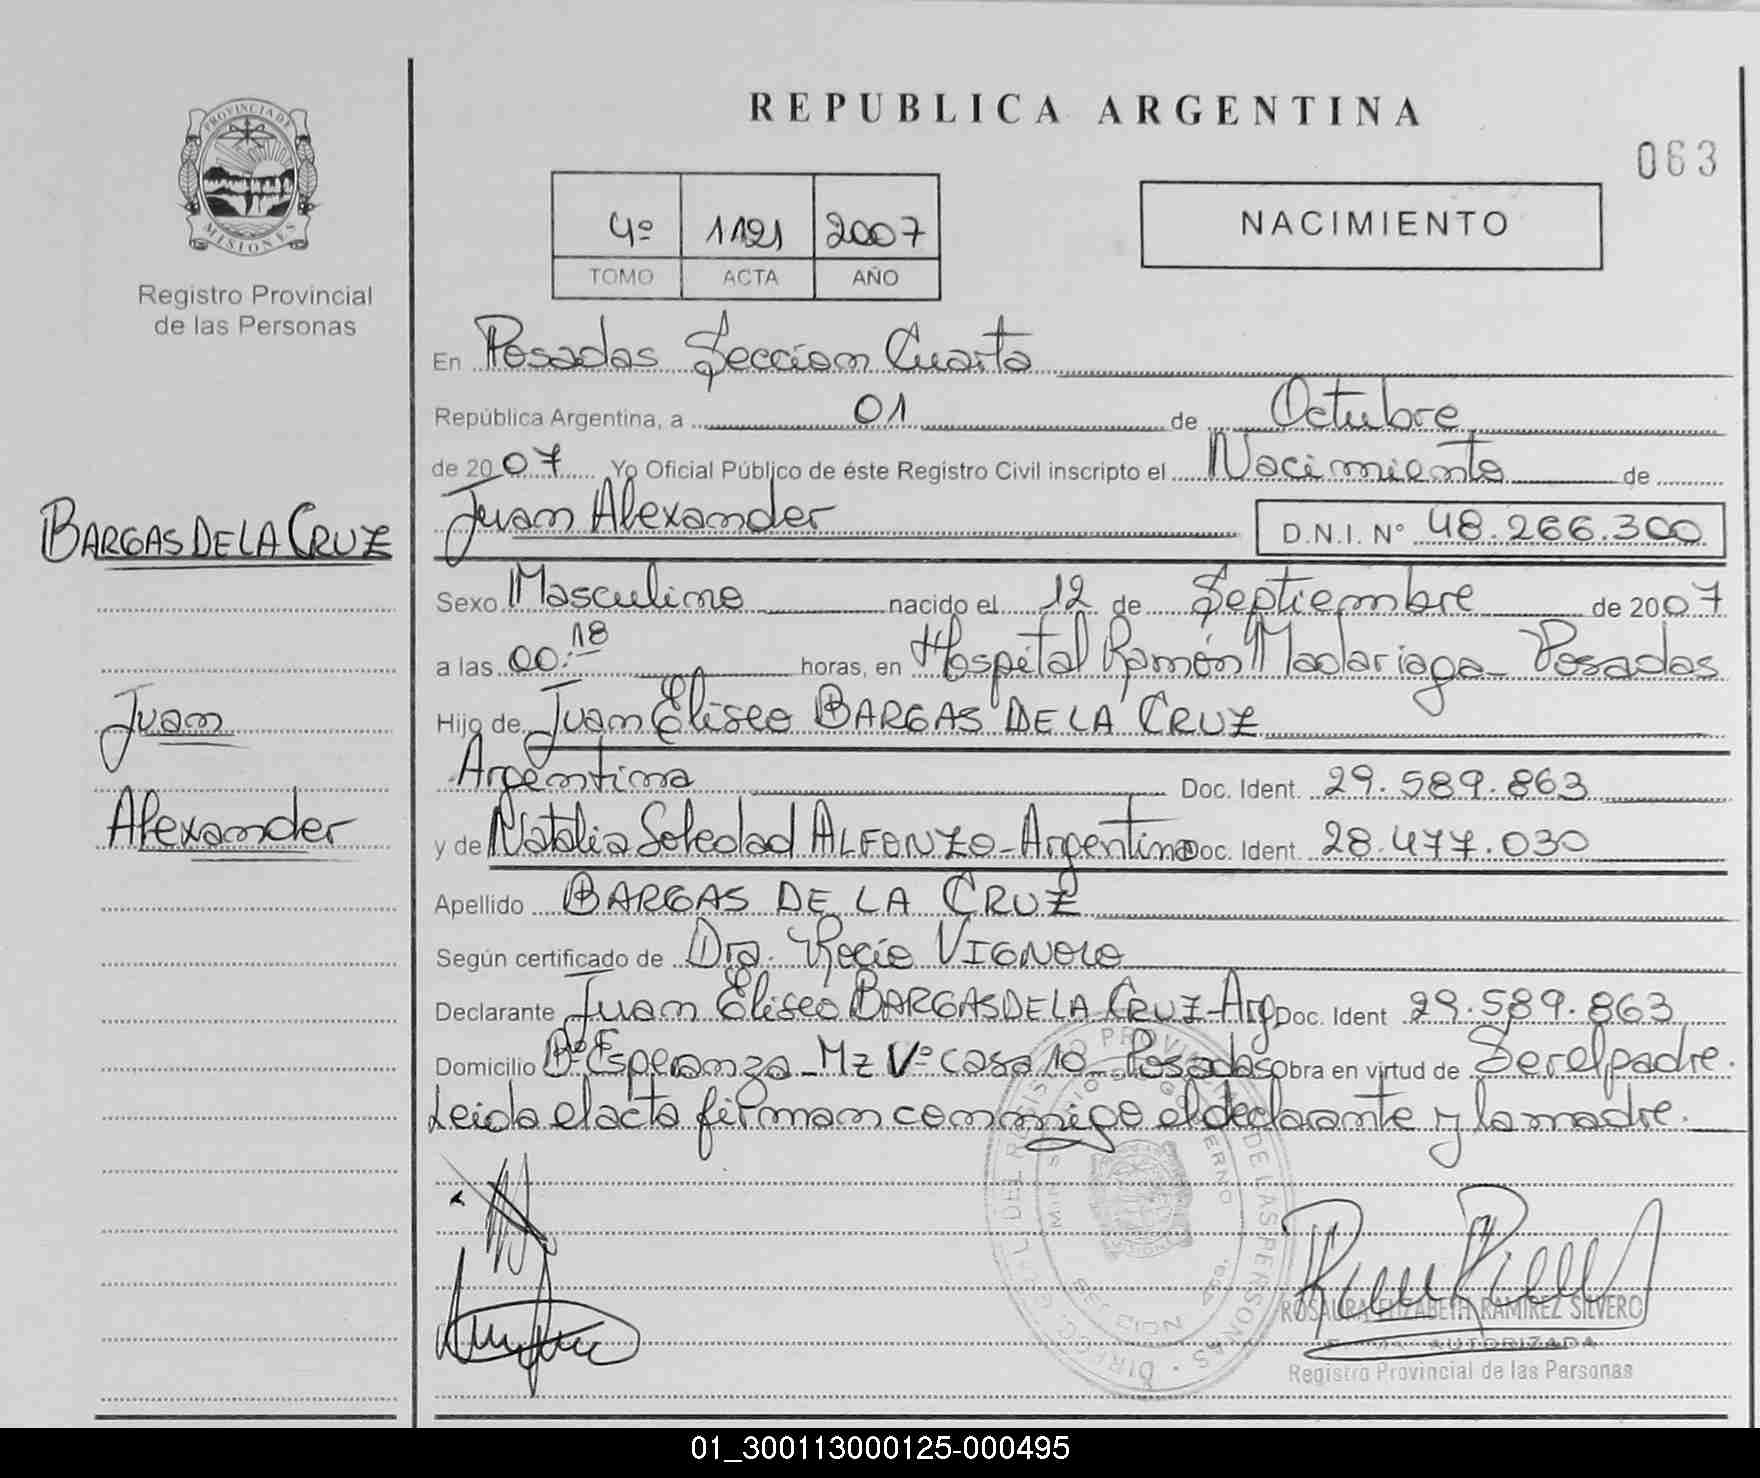 REPUBLICA ARGENTINA
063
PROVINCIA DE
MISIONES
Registro Provincial
de las Personas
4º 1121 2007
TOMO ACTA AÑO
NACIMIENTO
En Posadas Sección Cuarta
República Argentina, a 01 de Octubre
de 2007 Yo Oficial Público de éste Registro Civil inscripto el Nacimiento de
BARGAS DE LA CRUZ
Juan Alexander D.N.I. N° 48.266.300
Sexo Masculino nacido el 12 de Septiembre de 2007
a las 00:18 horas, en Hospital Ramón Madariaga - Posadas
Juan
Hijo de Juan Eliseo BARGAS DE LA CRUZ
Argentina Doc. Ident. 29.589.863
Alexander
y de Natalia Soledad ALFONZO - Argentina Doc. Ident. 28.477.030
Apellido BARGAS DE LA CRUZ
Según certificado de Dra. Rocío VIGNOLO
Declarante Juan Eliseo BARGAS DE LA CRUZ - Arg. Doc. Ident 29.589.863
Domicilio Bº Esperanza - Mz Vº casa 10 - Posadas Obra en virtud de Ser el padre.
Leida el acta firman conmigo el declarante y la madre.
DIREC. GRAL. DEL REGISTRO PROVINCIAL DE LAS PERSONAS
SECCION 4ta.
ROSAURA ELIZABETH RAMIREZ SILVERO
AUTORIZADA
Registro Provincial de las Personas
01_300113000125-000495